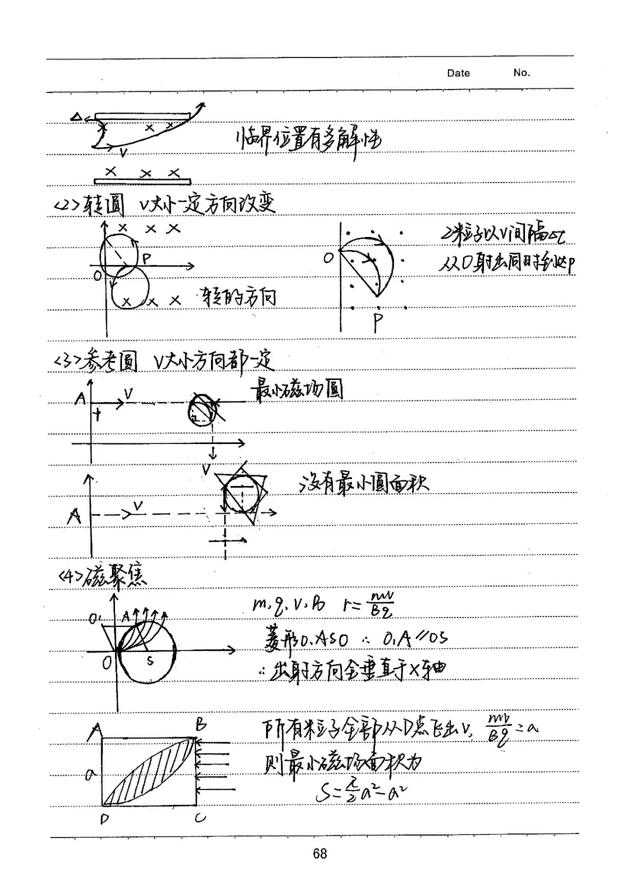 Date No.
Δ
× × ×
V
临界位置有多解性
× × ×
<2>转圆 V大小一定方向改变
× × ×
O P
× × ×
转的方向
O
P
2粒子以V间隔Δt
从O射出同时到达P
<3>参考圆 V大小方向都一定
A V
+
最小磁场圆
V
A V
没有最小圆面积
<4>磁聚焦
O₁ A
O S
m,q,V,B r=mv/Bq
菱形O₁ASO ∴ O₁A∥OS
∴出射方向全垂直于X轴
A B
a
D C
所有粒子全部从D点飞出V, mv/Bq=a
则最小磁场面积为
S=π/2a²-a²
68